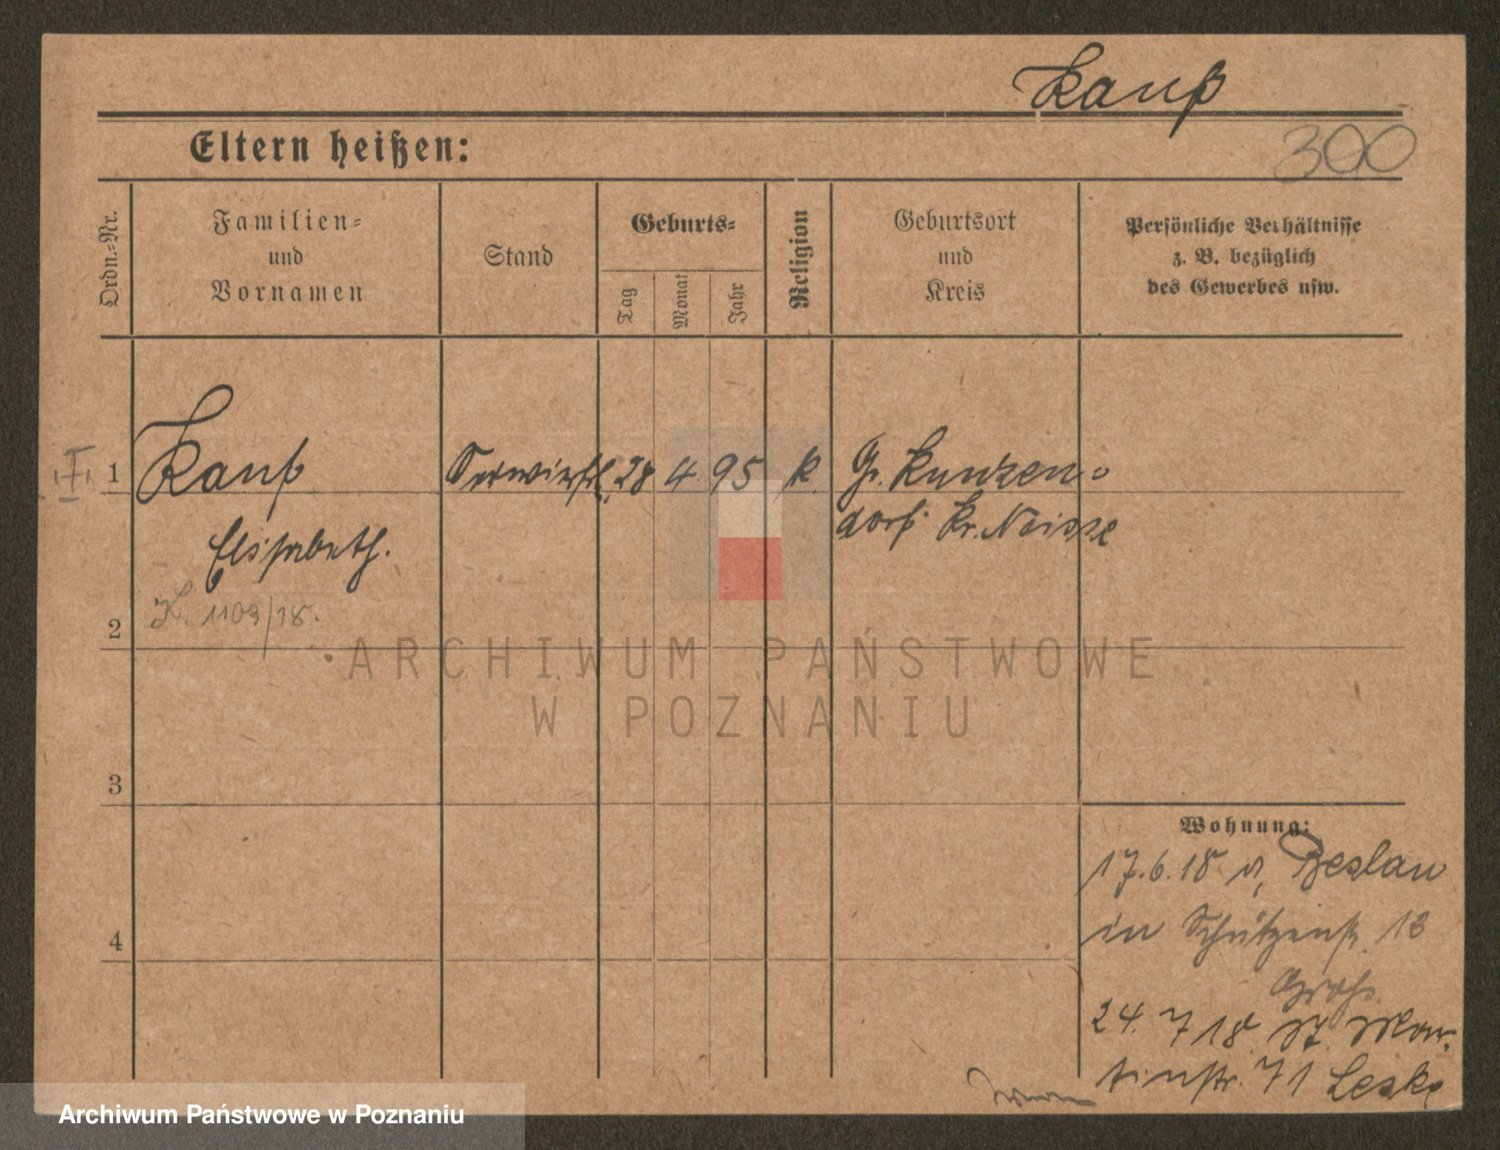 Kauß
300
Eltern heißen:
Ordn.-Nr.
Familien-
und
Vornamen
Stand
Geburts-
Tag
Monat
Jahr
Religion
Geburtsort
und
Kreis
Persönliche Verhältnisse
z. B. bezüglich
des Gewerbes usw.
1 Kauß 28 4. 95 k. Gr. Kunzen-
Elisabeth. dorf Kr. Neisse
K. 1103/18.
2
3
4
Wohnung:
17.6.18 Beslau
in Schützenstr. 13
24. 7 18 St. Mar-
tinstr. 71 Leske
ARCHIWUM PAŃSTWOWE
W POZNANIU
Archiwum Państwowe w Poznaniu